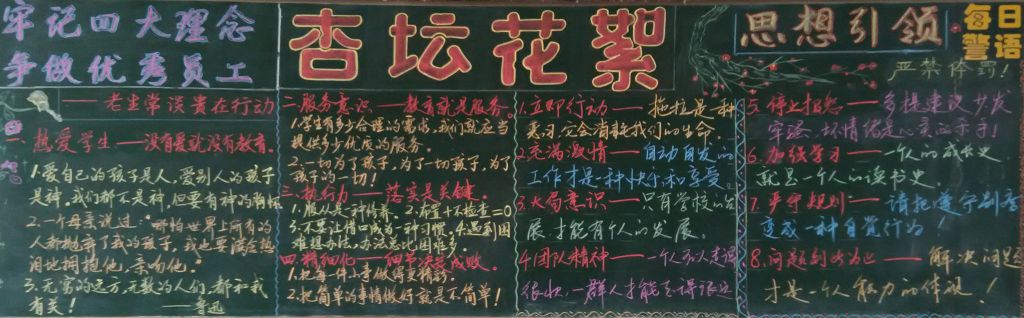 牢记四大理念
争做优秀员工
杏坛花絮
思想引领
每日
警语
严禁体罚!
——老生常谈贵在行动
一、热爱学生——没有爱就没有教育。
1.爱自己的孩子是人,爱别人的孩子
是神。我们都不是神,但要有神的情怀
2.一个母亲说过:哪怕世界上所有的
人都抛弃了我的孩子,我也要满含热
泪地拥抱他,亲吻他。
3.无穷的远方,无数的人们,都和我
有关!——鲁迅
二、服务意识——教育就是服务。
1.学生有多少合理的需求,我们就应当
提供多少优质的服务。
2.一切为了孩子,为了一切孩子,为了
孩子的一切!
三、执行力——落实是关键。
1.服从是一种修养。2.布置+不检查=0
3.不要让借口成为一种习惯。4.遇到困
难想办法,办法总比困难多。
四、精细化——细节决定成败。
1.把每一件小事做得更精彩
2.把简单的事情做好就是不简单!
1.立即行动——拖拉是种
恶习,它会消耗我们的生命。
2.充满激情——自动自发的
工作才是一种快乐和享受。
3.大局意识——只有学校的
展才能有个人的发展。
4.团队精神——一个人走得
很快,一群人才能走得很远
5.停止抱怨——多提建议少发
牢骚,坏情绪是心灵的杀手!
6.加强学习——一个人的成长史
就是一个人的读书史。
7.严守规则——请把遵守制度
变成一种自觉行为!
8.问题到此为止——解决问题
才是一个人能力的体现!